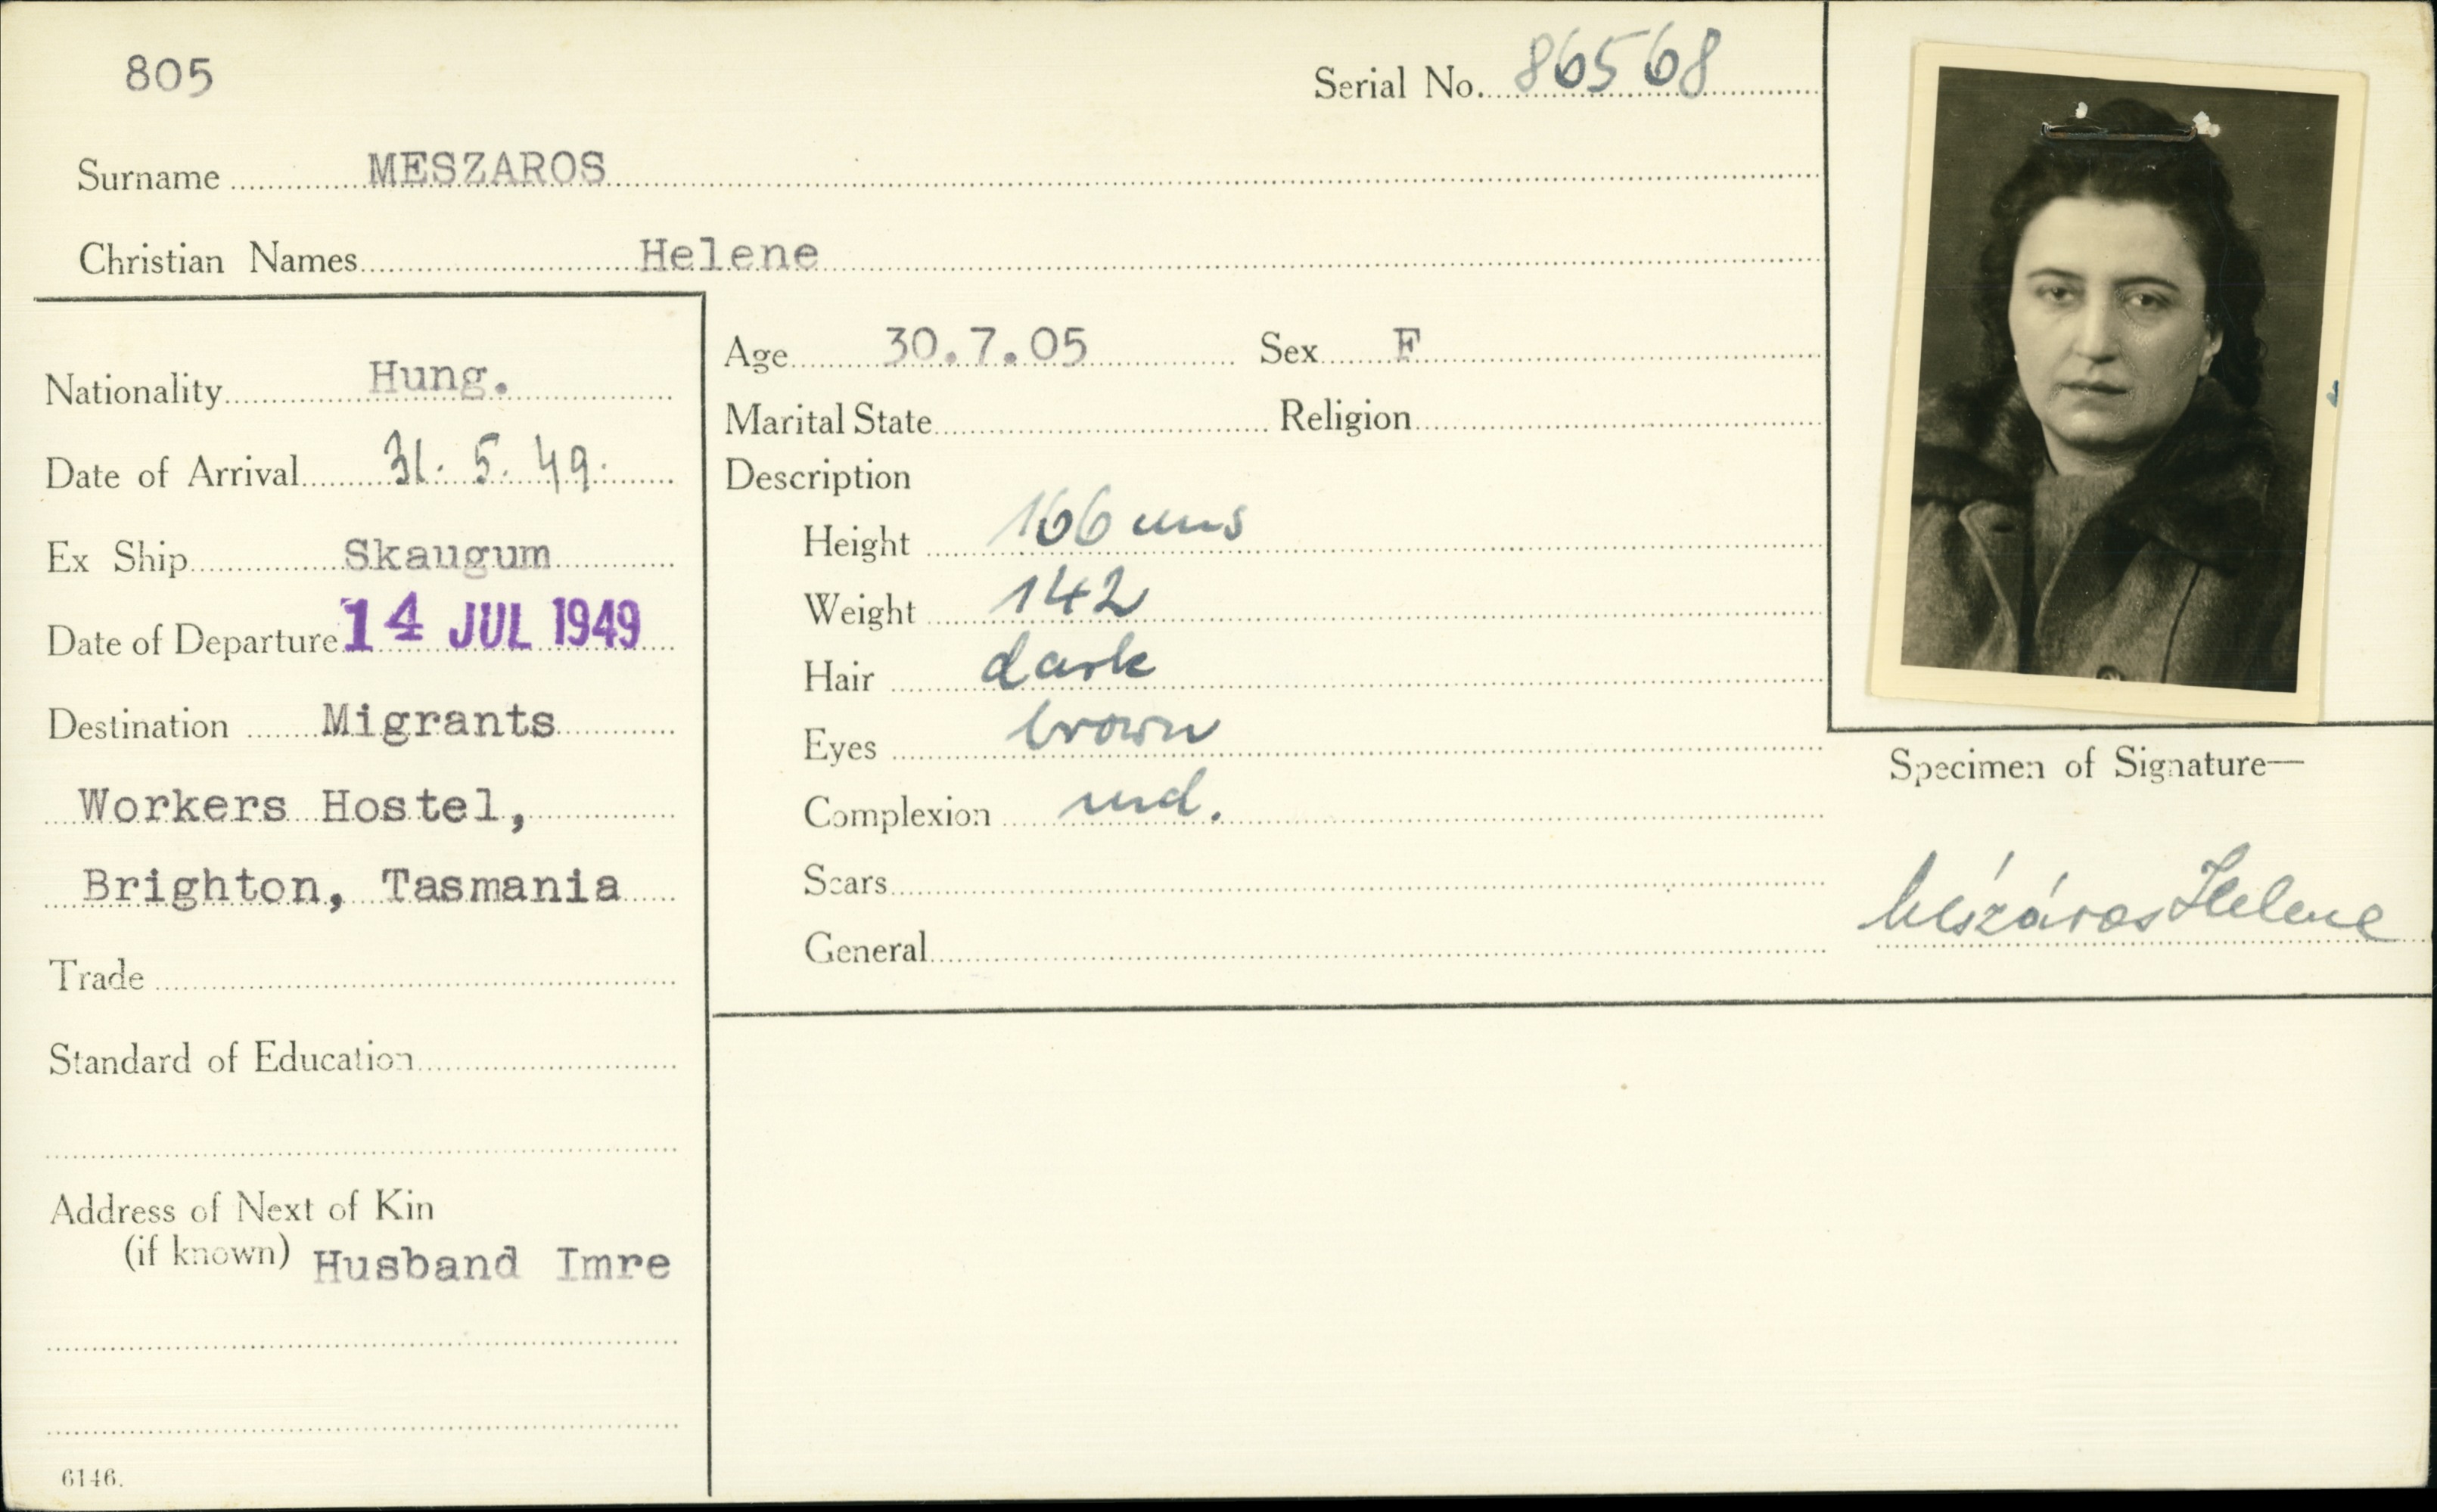 805
Serial No. 86568
Surname MESZAROS
Christian Names Helene
Nationality Hung.
Date of Arrival 31. 5. 49.
Ex Ship Skaugum
Date of Departure 14 JUL 1949
Destination Migrants
Workers Hostel,
Brighton, Tasmania
Trade
Standard of Education
Address of Next of Kin
(if known) Husband Imre
6146.
Age 30.7.05 Sex F
Marital State Religion
Description
Height 166 cms
Weight 142
Hair dark
Eyes brown
Complexion md.
Scars
General
Specimen of Signature—
Mészáros Helene